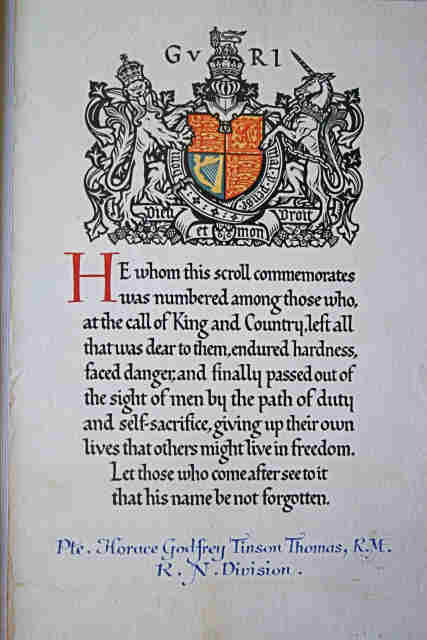 G V R I
Dieu
et mon
Droit
HE whom this scroll commemorates
was numbered among those who,
at the call of King and Country, left all
that was dear to them, endured hardness,
faced danger, and finally passed out of
the sight of men by the path of duty
and self-sacrifice, giving up their own
lives that others might live in freedom.
Let those who come after see to it
that his name be not forgotten.
Pte. Horace Godfrey Tinson Thomas, R.M.
R. N. Division.